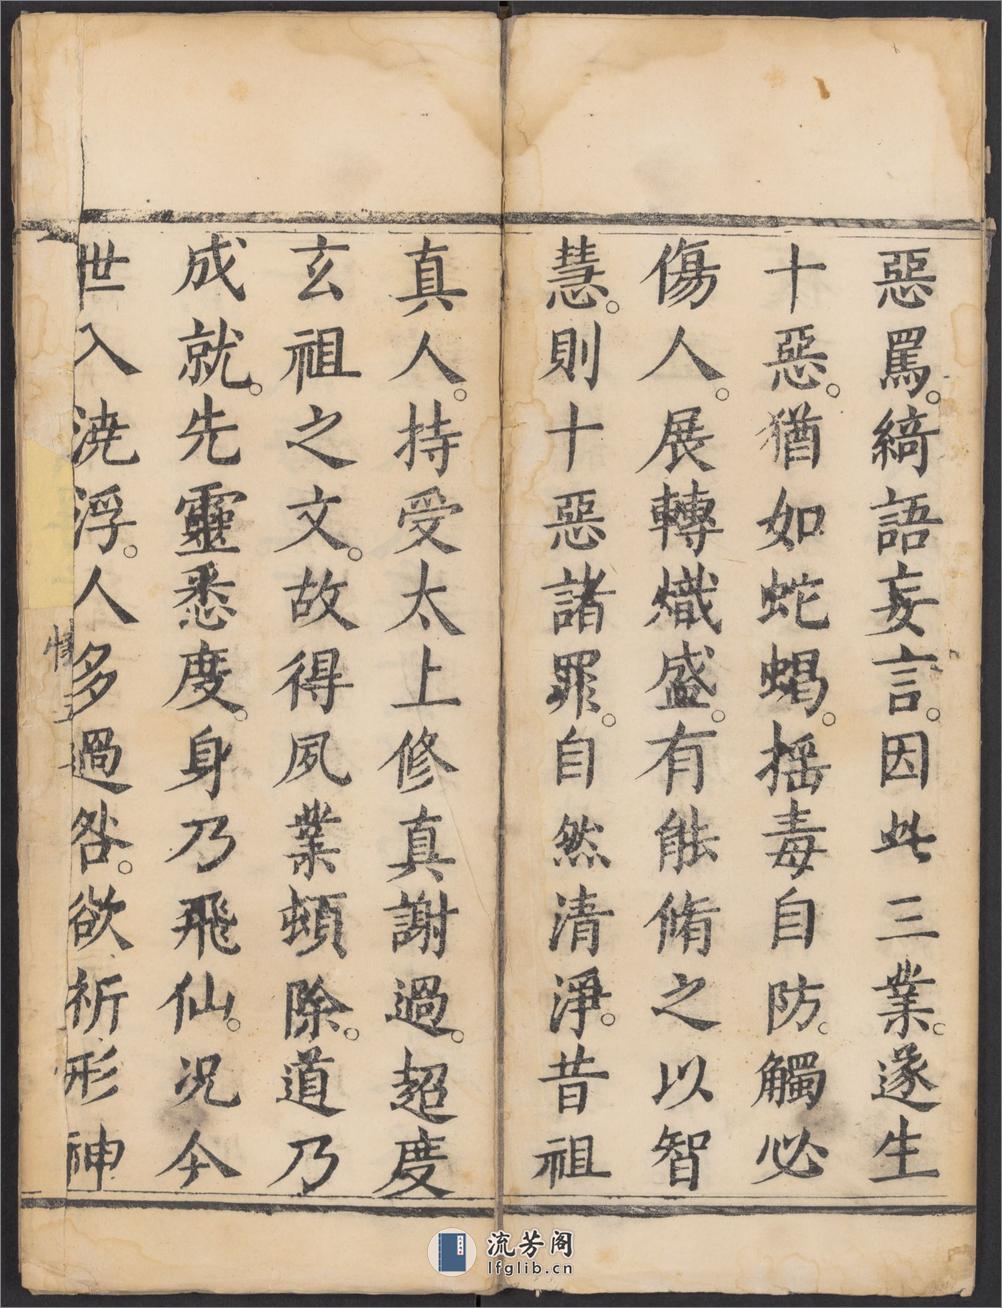 惡罵。綺語妄言。因此三業。遂生
十惡。猶如蛇蝎。揺毒自防。觸必
傷人。展轉熾盛。有能脩之以智
慧。則十惡諸罪。自然清淨。昔祖
真人。持受太上修真謝過。超度
玄祖之文。故得夙業頓除。道乃
成就。先靈悉度。身乃飛仙。况今
世入澆浮。人多過咎。欲祈形神
流芳阁
lfglib.cn